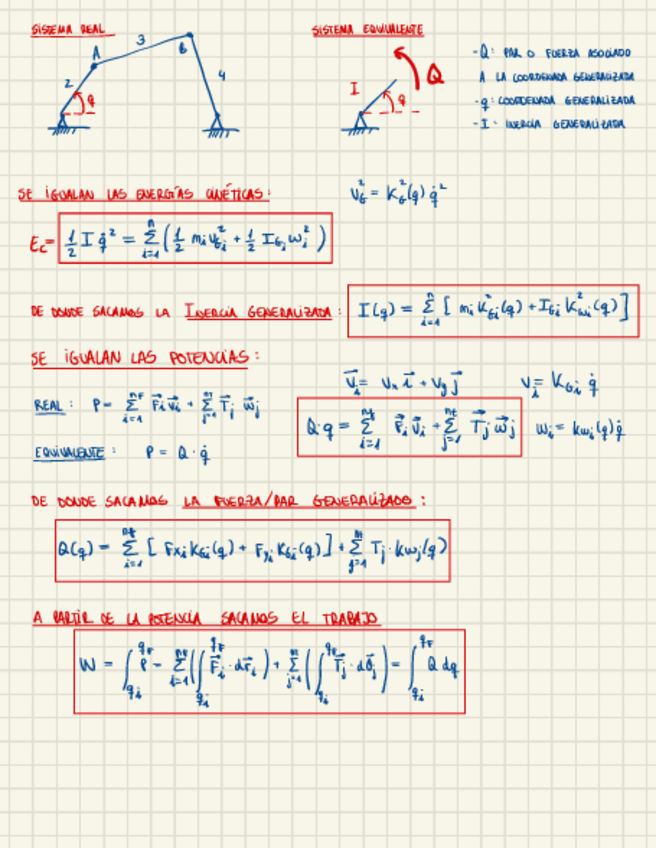 SISTEMA REAL
SISTEMA EQUIVALENTE
A 3 B
2 4
q
I Q
q
-Q: PAR O FUERZA ASOCIADO
A LA COORDENADA GENERALIZADA
-q: COORDENADA GENERALIZADA
-I: INERCIA GENERALIZADA
SE IGUALAN LAS ENERGÍAS CINÉTICAS:
V_G² = K_G²(q) q̇²
Ec = ½ I q̇² = Σ_{i=1}^{n} (½ m_i v_{Gi}² + ½ I_{Gi} ω_i²)
DE DONDE SACAMOS LA INERCIA GENERALIZADA:
I(q) = Σ_{i=1}^{n} [m_i K_{Gi}²(q) + I_{Gi} K_{ωi}²(q)]
SE IGUALAN LAS POTENCIAS:
V⃗_i = V_x i⃗ + V_y j⃗
V_i = K_{Gi} q̇
REAL: P = Σ_{i=1}^{nF} F⃗_i v⃗_i + Σ_{j=1}^{m} T⃗_j ω⃗_j
Q·q = Σ_{i=1}^{nf} F⃗_i v⃗_i + Σ_{j=1}^{nt} T⃗_j ω⃗_j
ω_i = k_{ωi}(q) q̇
EQUIVALENTE: P = Q · q̇
DE DONDE SACAMOS LA FUERZA/PAR GENERALIZADO:
Q(q) = Σ_{i=1}^{nf} [F_{xi} K_{Gi}(q) + F_{yi} K_{Gi}(q)] + Σ_{j=1}^{m} T_j · k_{ωj}(q)
A PARTIR DE LA POTENCIA SACAMOS EL TRABAJO
W = ∫_{qi}^{qF} P = Σ_{i=1}^{nf} (∫_{qi}^{qF} F⃗_i · dr⃗_i) + Σ_{j=1}^{m} (∫_{qi}^{qF} T⃗_j · dθ⃗_j) = ∫_{qi}^{qF} Q dq